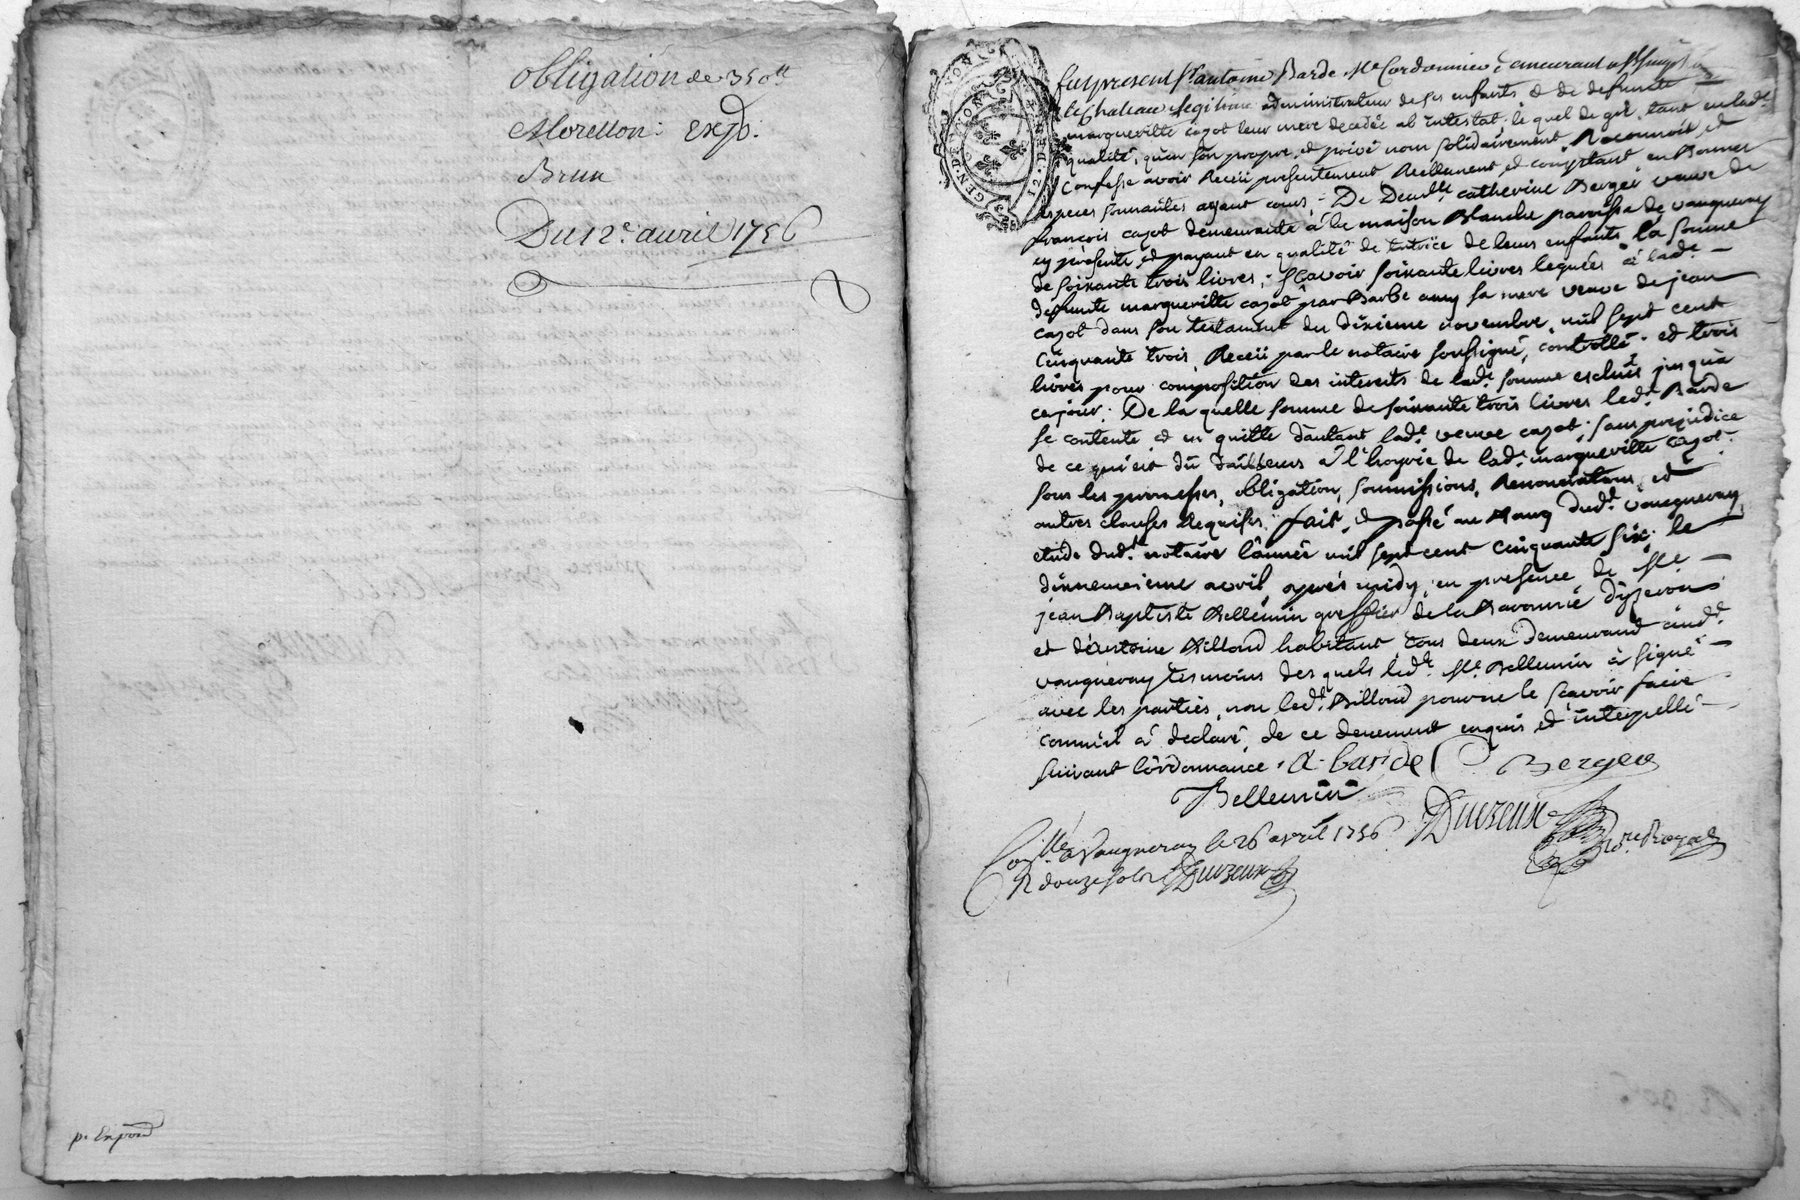 obligation de 350ᵗᵗ
Morellon: Expo:
Brun
Du 12e. auril 1756
p. Expond
GEN. DE LYON
12. DEN
fut present Sr. antoine Barde Me. Cordonnier demeurant a St Simph
le Chateau legitime administrateur de ses enfants et de defunte
margueritte cazot leur mere decedée ab intestat; le quel de gré, tant en lade.
qualité, qu'en son propre, et privé nom solidairement, Reconnoit et
Confesse avoir Receü presentement Reellement et comptant en Bonnes
especes sonnantes ayant cours,- De Demlle. catherine Berger veuve de
françois cazot demeurante à la maison Blanche paroisse de vaugneray
cy présente, et payant en qualité de tutrice de leurs enfants la somme
de soixante trois livres; sçavoir soixante livres leguées à lade.
defunte margueritte cazot par Barbe sa mere veuve de jean
cazot dans son testament du dixieme novembre mil sept cent
cinquante trois, Receü par le notaire soussigné, controllé. et trois
livres pour composition des interets de lade. somme jusqu'à
ce jour. De la quelle somme de soixante trois livres ledt. Barde
se contente et en quitte d'autant lade. veuve cazot; sans prejudice
de ce qui est dû d'ailleurs à l'hoyrie de lade. margueritte cazot.
sous les promesses, obligation, soumissions, Renonciations, et
autres clauses Requises. fait, et passé au Bourg dudt. vaugneray,
etude dudt. notaire l'année mil sept cent cinquante six; le
avril, après midy, en presence de Me.
jean Baptiste Bellemin greffier de la Baronnie d'yzeron
et d'antoine Billoud habitant, tous deux demeurant audt.
vaugneray tesmoins des quels ledt. Me. Bellemin à signé
avec les parties, non ledt. Billoud pour ne le sçavoir faire
comme il à declaré, de ce deuement enquis et interpellé
suivant l'ordonnance. A. barde C. Berger
Bellemin
Collé. a Vaugneray le 26 avril 1756. Duvzeux
R douze sols Duvzeux nore Royal